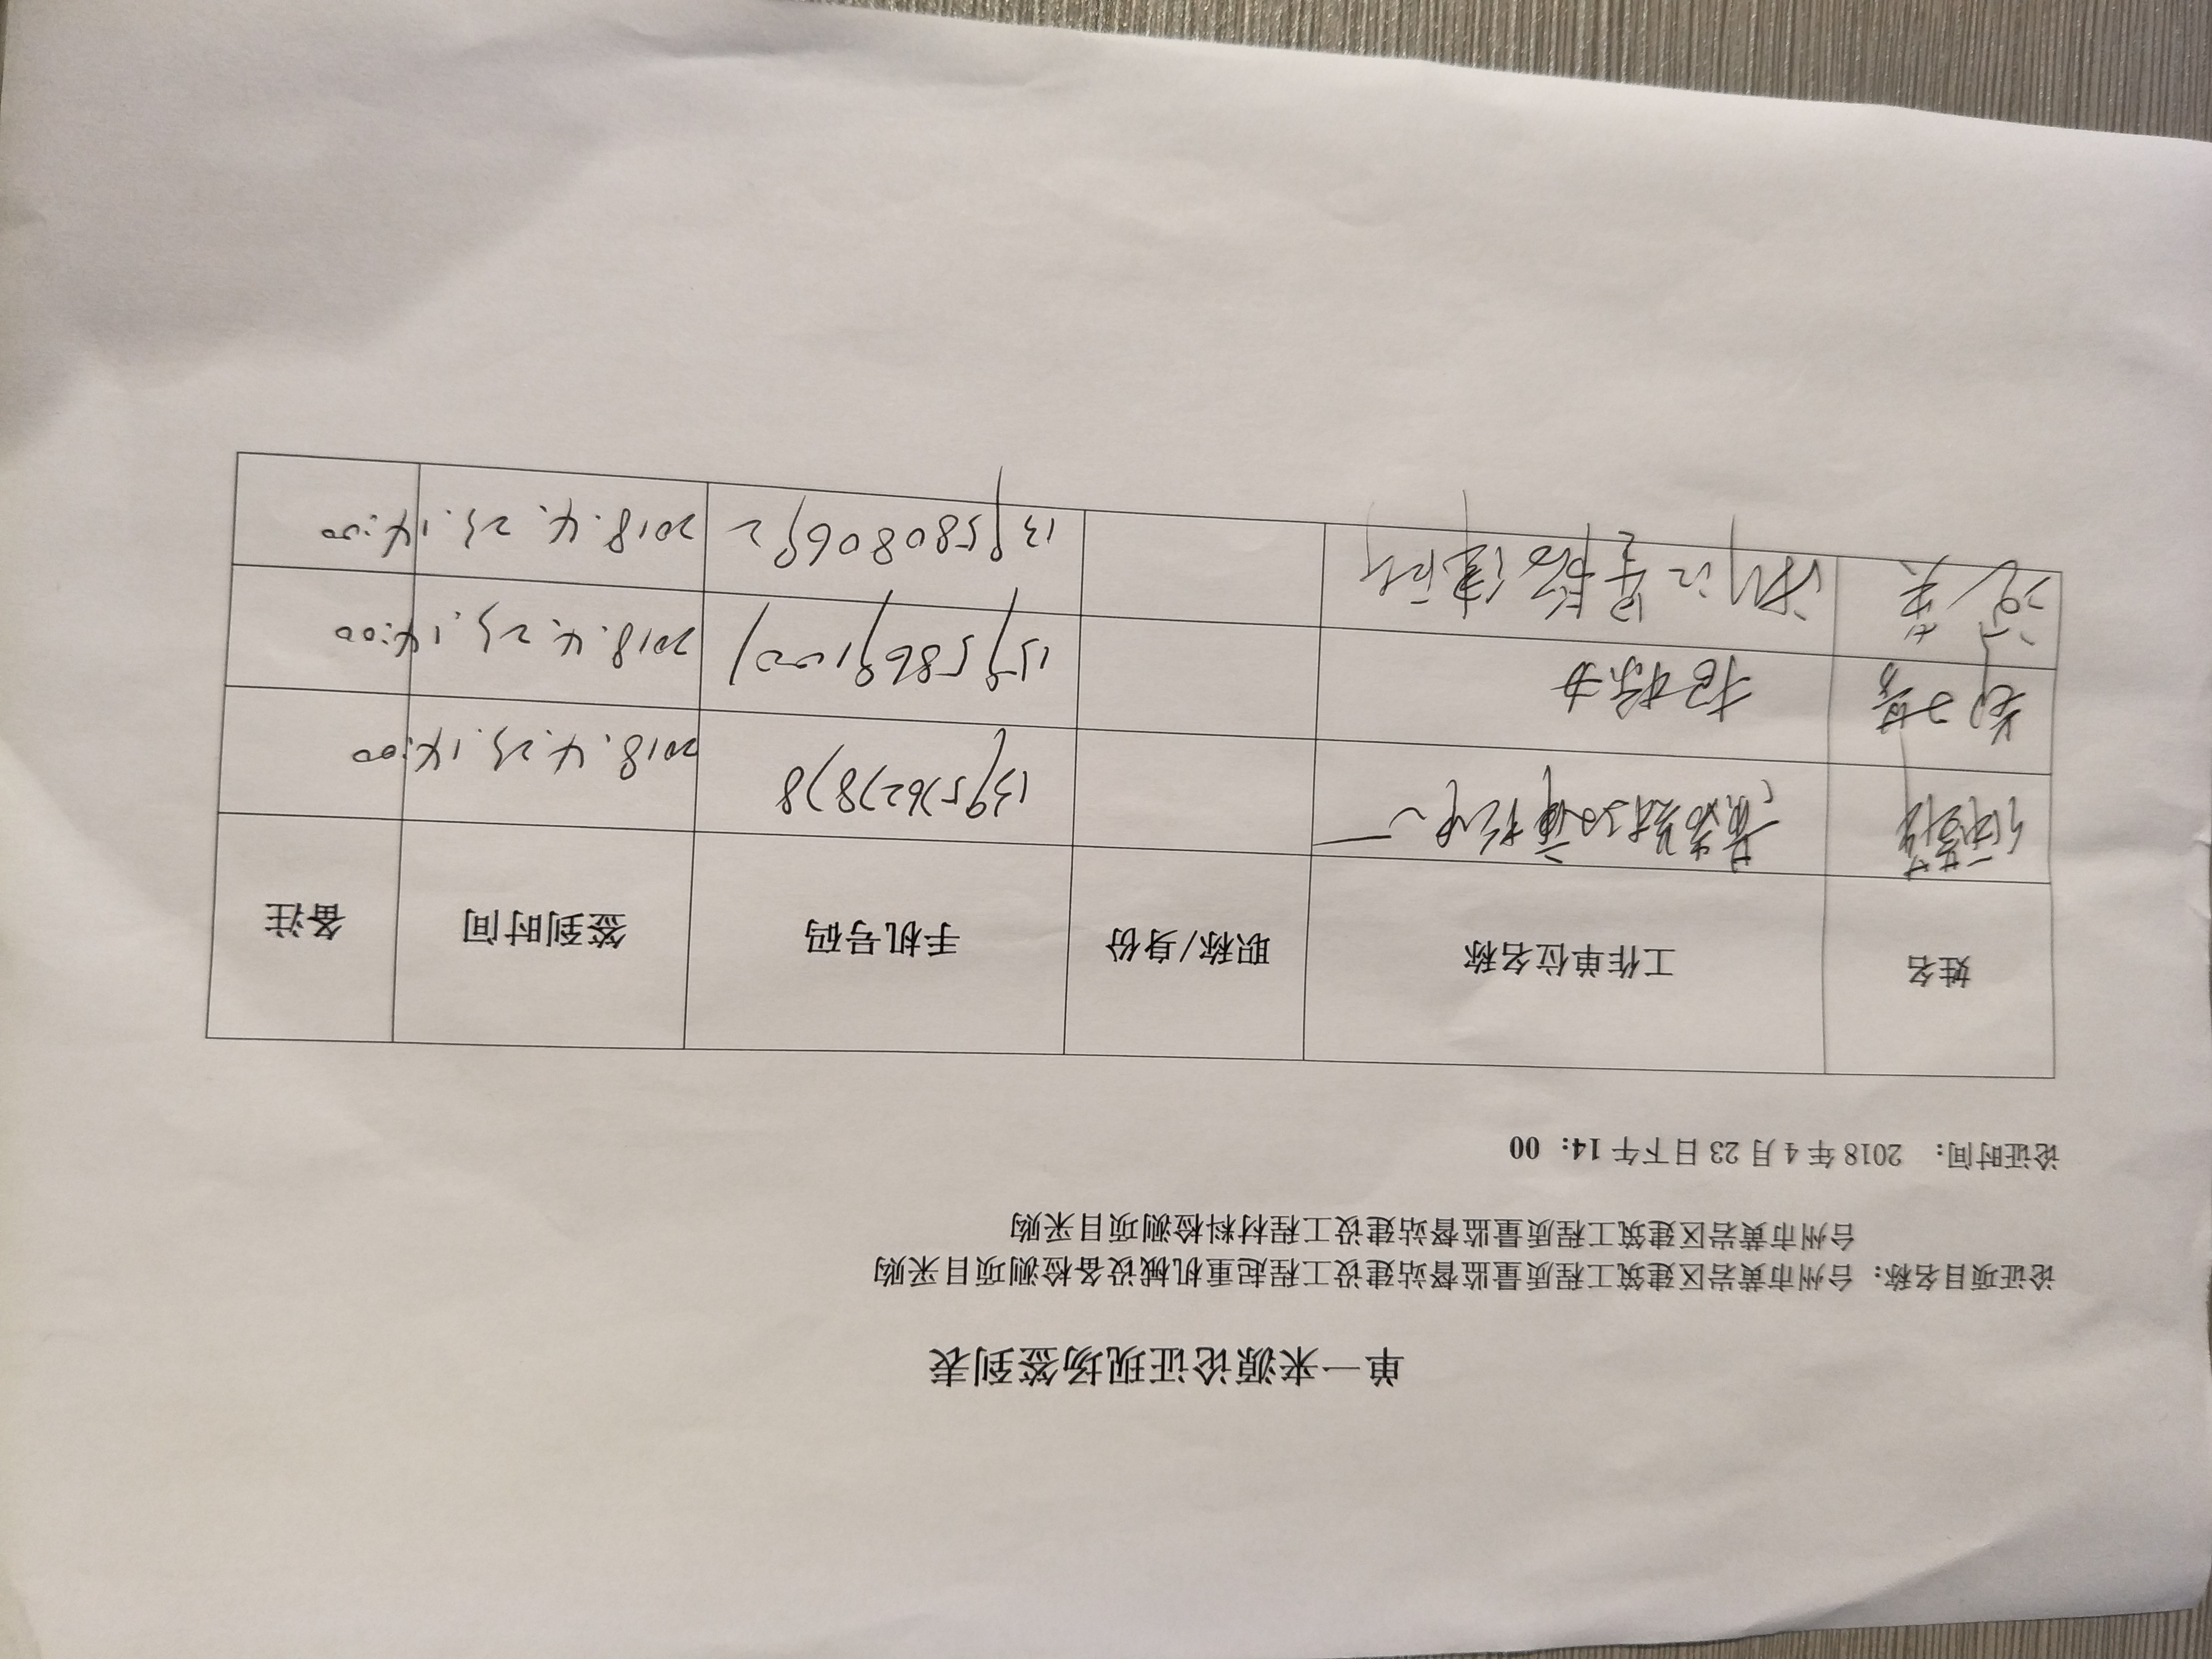 单一来源论证现场签到表
论证项目名称：台州市黄岩区建筑工程质量监督站建设工程起重机械设备检测项目采购
台州市黄岩区建筑工程质量监督站建设工程材料检测项目采购
论证时间： 2018年4月23日下午14：00
姓名 工作单位名称 职称/身份 手机号码 签到时间 备注
13957627878 2018.4.23.14:00
招标办 15958691007 2018.4.23.14:00
13958080692 2018.4.23.14:00